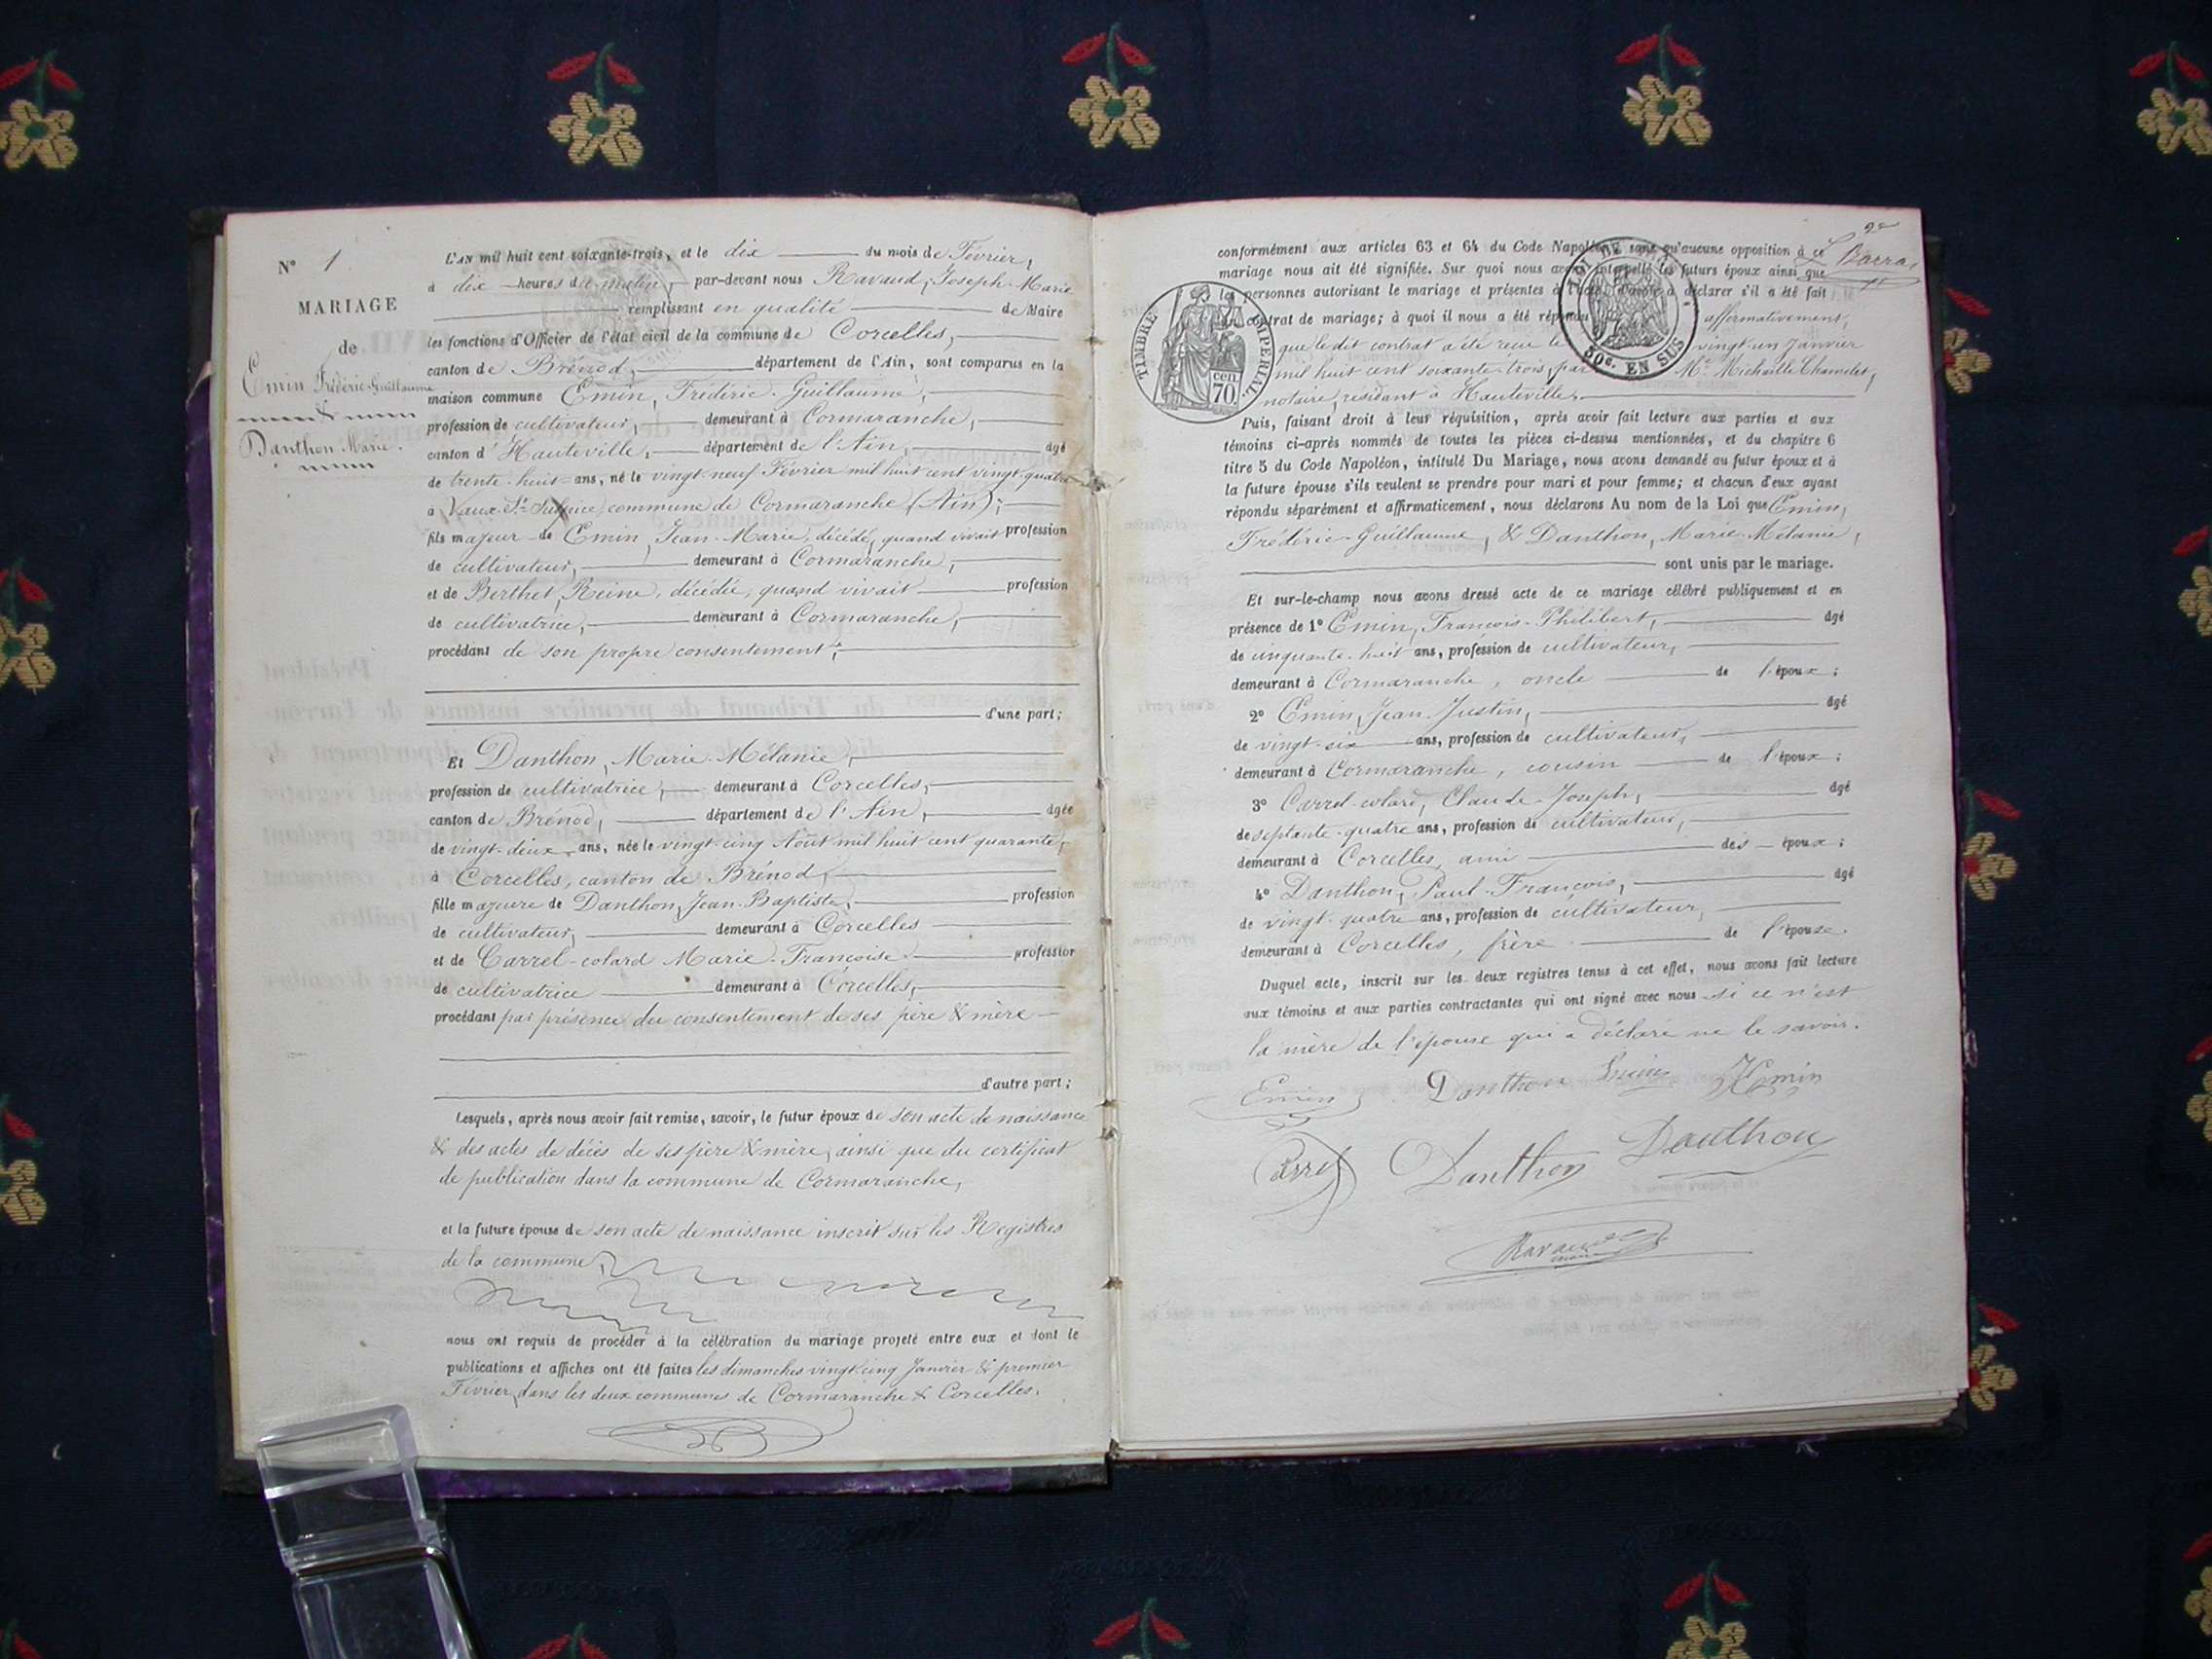 N° 1
MARIAGE
de
Emin Frédéric-Guillaume
&
Danthon Marie.
L'AN mil huit cent soixante-trois, et le dix du mois de Février,
à dix heures du matin, par-devant nous Ravaud, Joseph-Marie
remplissant en qualité de Maire
les fonctions d'Officier de l'état civil de la commune de Corcelles,
canton de Brénod, département de l'Ain, sont comparus en la
maison commune Emin, Frédéric-Guillaume,
profession de cultivateur, demeurant à Cormaranche,
canton d'Hauteville, département de l'Ain, âgé
de trente-huit ans, né le vingt-neuf Février mil huit cent vingt-quatre
à Vaux-St-Sulpice, commune de Cormaranche (Ain);
fils majeur de Emin, Jean-Marie, décédé, quand vivait profession
de cultivateur, demeurant à Cormaranche,
et de Berthet, Reine, décédée, quand vivait profession
de cultivatrice, demeurant à Cormaranche,
procédant de son propre consentement,
d'une part;
Et Danthon, Marie-Mélanie,
profession de cultivatrice, demeurant à Corcelles,
canton de Brénod, département de l'Ain, âgée
de vingt-deux ans, née le vingt-cinq Août mil huit cent quarante,
à Corcelles, canton de Brénod,
fille majeure de Danthon, Jean-Baptiste, profession
de cultivateur, demeurant à Corcelles
et de Carrel-colard Marie-Françoise profession
de cultivatrice demeurant à Corcelles,
procédant par présence du consentement de ses père & mère
d'autre part;
Lesquels, après nous avoir fait remise, savoir, le futur époux de son acte de naissance
& des actes de décès de ses père & mère, ainsi que du certificat
de publication dans la commune de Cormaranche,
et la future épouse de son acte de naissance inscrit sur les Registres
de la commune,
nous ont requis de procéder à la célébration du mariage projeté entre eux et dont le
publications et affiches ont été faites les dimanches vingt-cinq Janvier & premier
Février, dans les deux communes de Cormaranche & Corcelles.
2e
Barra
conformément aux articles 63 et 64 du Code Napoléon, sans qu'aucune opposition à ce
mariage nous ait été signifiée. Sur quoi nous avons interpellé les futurs époux ainsi que
les personnes autorisant le mariage et présentes à l'acte, d'avoir à déclarer s'il a été fait
un contrat de mariage; à quoi il nous a été répondu affirmativement,
que le dit contrat a été reçu le vingt-un Janvier
mil huit cent soixante-trois, par Me Michaille Chamelet,
notaire, résidant à Hauteville,
TIMBRE IMPERIAL
70 cen
LOI DE
50c. EN SUS
Puis, faisant droit à leur réquisition, après avoir fait lecture aux parties et aux
témoins ci-après nommés de toutes les pièces ci-dessus mentionnées, et du chapitre 6
titre 5 du Code Napoléon, intitulé Du Mariage, nous avons demandé au futur époux et à
la future épouse s'ils veulent se prendre pour mari et pour femme; et chacun d'eux ayant
répondu séparément et affirmativement, nous déclarons Au nom de la Loi que Emin,
Frédéric-Guillaume, & Danthon, Marie-Mélanie,
sont unis par le mariage.
Et sur-le-champ nous avons dressé acte de ce mariage célébré publiquement et en
présence de 1° Emin, François-Philibert, âgé
de cinquante-huit ans, profession de cultivateur,
demeurant à Cormaranche, oncle de l'époux;
2° Emin, Jean-Justin, âgé
de vingt-six ans, profession de cultivateur,
demeurant à Cormaranche, cousin de l'époux;
3° Carrel-colard, Claude-Joseph, âgé
de septante-quatre ans, profession de cultivateur,
demeurant à Corcelles, ami des époux;
4° Danthon, Paul-François, âgé
de vingt-quatre ans, profession de cultivateur,
demeurant à Corcelles, frère de l'épouse.
Duquel acte, inscrit sur les deux registres tenus à cet effet, nous avons fait lecture
aux témoins et aux parties contractantes qui ont signé avec nous si ce n'est
la mère de l'épouse qui a déclaré ne le savoir.
Emin Danthon Emin Emin
Carrel Danthon Danthon
Ravaud